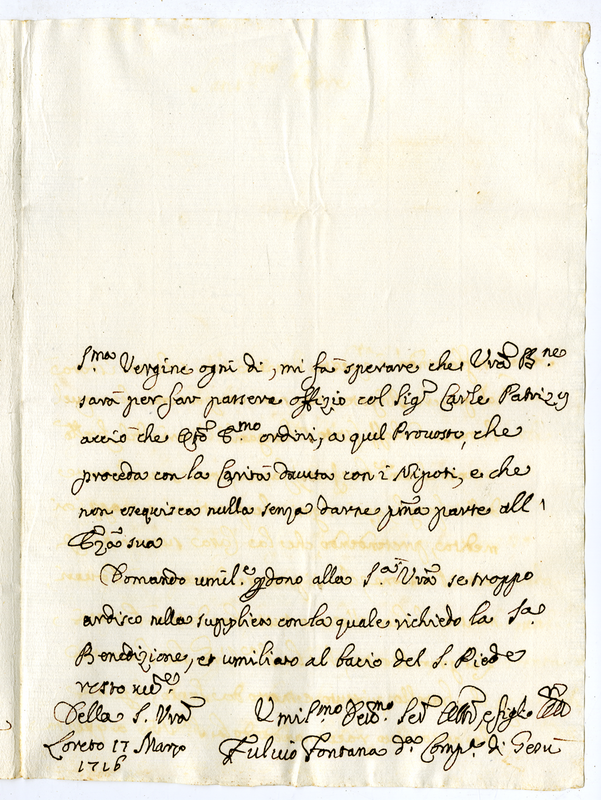 S.ma Vergine ogni dì, mi fà sperare che Vrã B.ne
sarà per far passare offizio col Sig.r Car.le Patrizij
acciò che Q.sto E.mo ordini, a quel Provosto, che
proceda con la Carità dovuta con i Nipoti, e che
non eseguisca nulla senza darne p.ma parte all'
Eza sua
Domando umil.e p̱dono alla S.à Vrã se troppo
ardisco nella supplica con la quale richiedo la S.a
Benedizione, et umiliato al bacio del S. Piede
resto
Della S. Vrã
Umil.mo Dev.mo Ser.
Loreto 17 Marzo
1716
Fulvio Fontana d.a Comp.a di Gesù